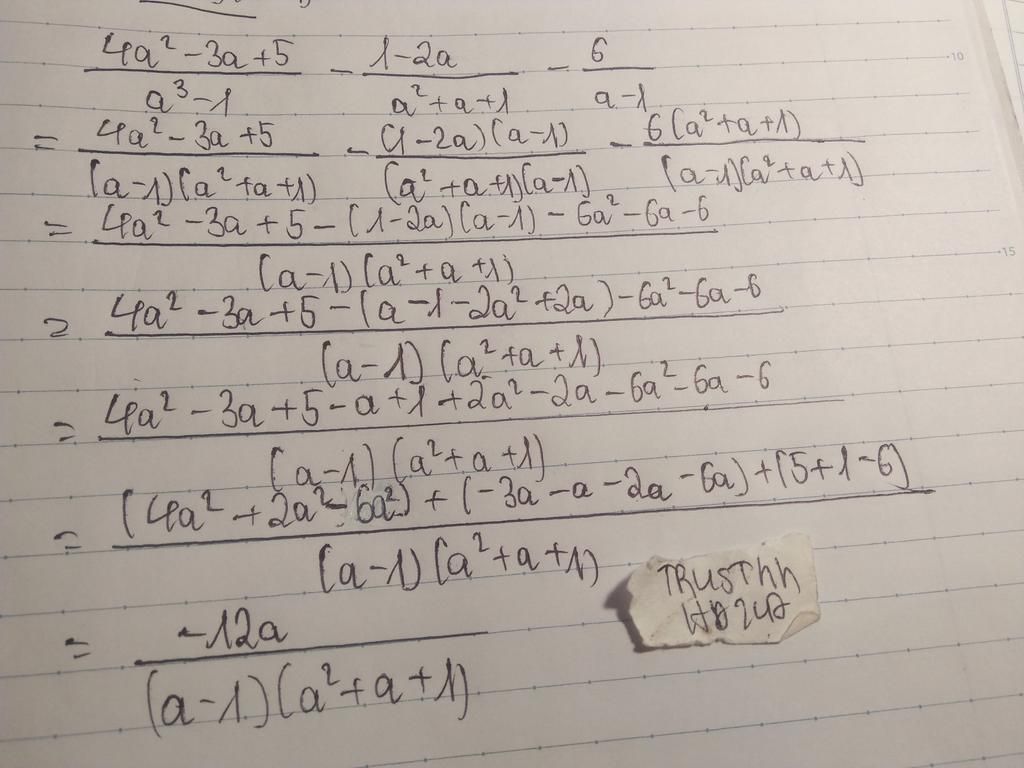 (4a² - 3a + 5)/(a³ - 1) - (1 - 2a)/(a² + a + 1) - 6/(a - 1)
= (4a² - 3a + 5)/((a-1)(a² + a + 1)) - ((1 - 2a)(a - 1))/((a² + a + 1)(a - 1)) - (6(a² + a + 1))/((a-1)(a² + a + 1))
= (4a² - 3a + 5 - (1 - 2a)(a - 1) - 6a² - 6a - 6)/((a - 1)(a² + a + 1))
= (4a² - 3a + 5 - (a - 1 - 2a² + 2a) - 6a² - 6a - 6)/((a - 1)(a² + a + 1))
= (4a² - 3a + 5 - a + 1 + 2a² - 2a - 6a² - 6a - 6)/((a - 1)(a² + a + 1))
= ((4a² + 2a² - 6a²) + (-3a - a - 2a - 6a) + (5 + 1 - 6))/((a - 1)(a² + a + 1))
= (-12a)/((a - 1)(a² + a + 1))
10
15